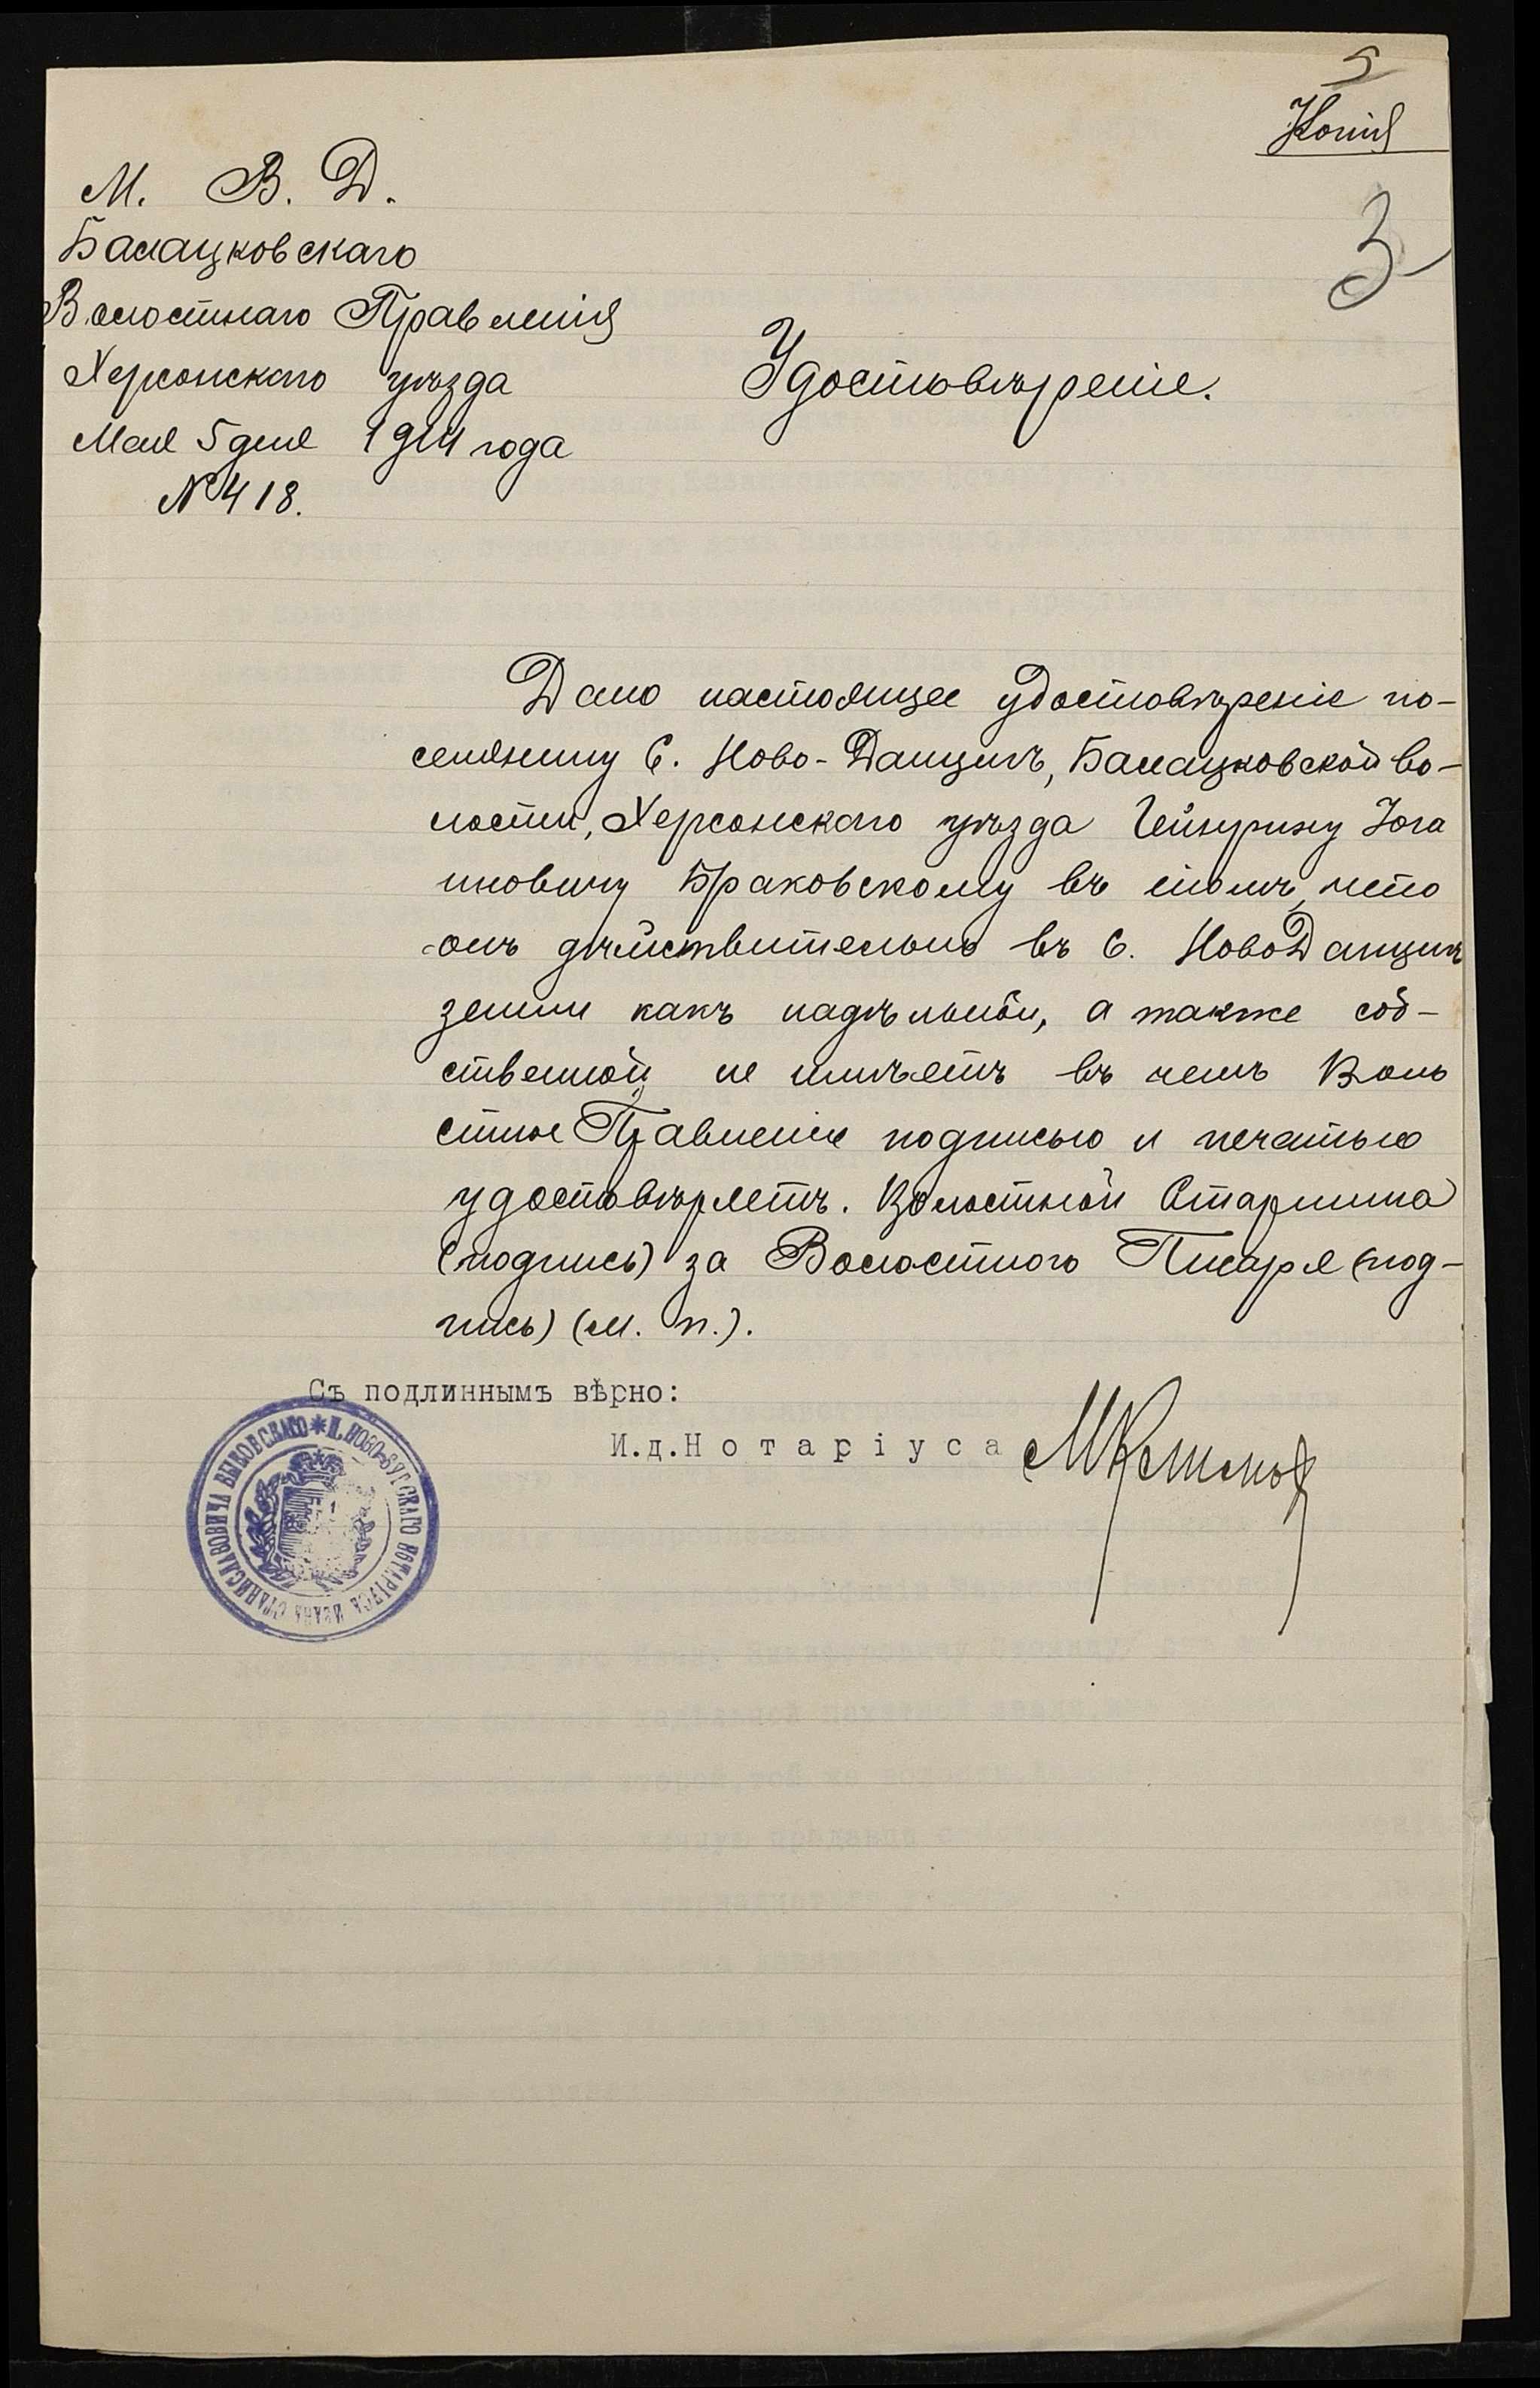 5
Копія
3
М. В. Д.
Балацковскаго
Волостнаго Правленія
Херсонскаго уѣзда
Мая 5 дня 1914 года
№ 418.
Удостовѣреніе.
Дано настоящее удостовѣреніе по-
селянину С. Ново-Данцигъ, Балацковской во-
лости, Херсонскаго уѣзда Гейнриху Іога
нновичу Браковскому въ томъ, что
онъ дѣйствительно въ С. НовоДанцигѣ
земли какъ надѣльной, а также соб-
ственной не имѣетъ въ чемъ Воло
стное Правленіе подписью и печатью
удостовѣряетъ. Волостной Старшина
(подпись) за Волостного Писаря (под-
пись) (м. п.).
Съ подлиннымъ вѣрно:
И.д.Нотаріуса
И. НОВО-БУГСКАГО НОТАРІУСА ИВАНА СТАНИСЛАВОВИЧА ВЫКОВСКАГО